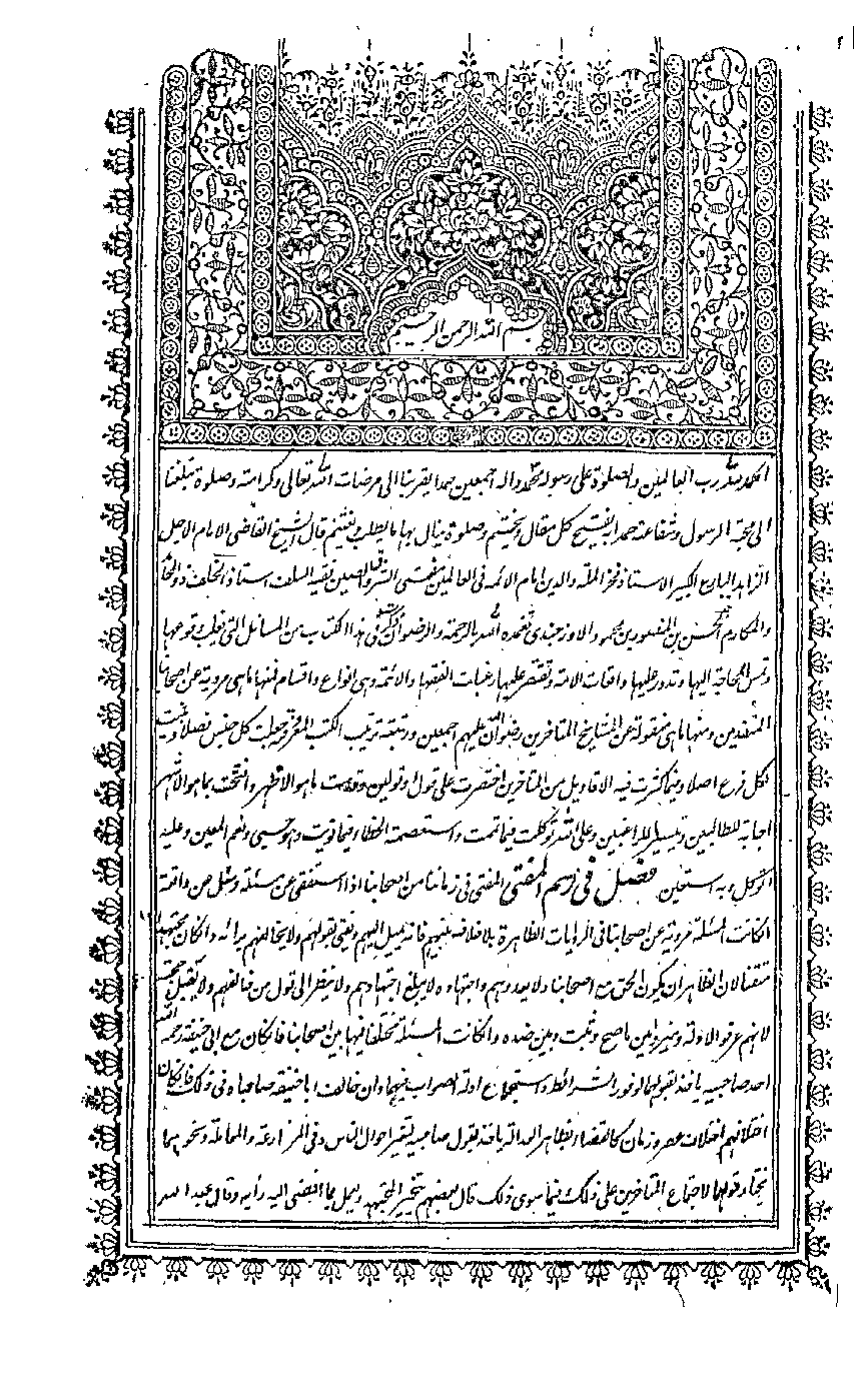 بسم الله الرحمن الرحيم
الحمد لله رب العالمين والصلوة على رسوله محمد واله اجمعين حمدا يقربنا الى مرضات الله تعالى وكرامته وصلوة تبلغنا
الى محبة الرسول وشفاعته حمدا به يفتتح كل مقال ويختتم وصلوة ينال بها ما يطلب يغتنم قال الشيخ القاضى الامام الاجل
الزاهد البارع الكبير الاستاذ فخر الملة والدين امام الائمه فى العالمين مفتى الشرق والصين بقية السلف استاذ الخلف ذو
والمكارم الحسن بن المنصور بن محمود الاوزجندى تغمده الله بالرحمة والرضوان ذكرت فى هذا الكتاب من المسائل التى يغلب وقوعها
وتمس الحاجة اليها وتدور عليها واقعات الامة وتقتصر عليها رغبات الفقهاء والائمة وهى انواع واقسام فمنها ماهى مروية عن اصحابنا
المتقدمين ومنها ماهى منقولة عن المشايخ المتاخرين رضوان الله عليهم اجمعين ورتبته ترتيب الكتب المعروفة وجعلت كل جنس فصلا وبينت
لكل فرع اصلا وفيما كثرت فيه الاقاويل من المتأخرين اختصرت على قول او قولين وقدمت ماهو الاظهر وافتتحت بماهو الاشهر
اجابة للطالبين وتيسيرا للراغبين وعلى الله توكلت فيما تمت واستعصمه الخطاء فيما نويت وهو حسبى ونعم المعين وعليه
اتوكل وبه استعين فصل فى رسم المفتى المفتى فى زماننا من اصحابنا اذا استفتى عن مسئلة وسئل عن واقعة
انكانت المسئلة مروية عن اصحابنا فى الروايات الظاهرة بلا خلاف بينهم فانه يميل اليهم ويفتى بقولهم ولا يخالفهم برائه وانكان مجتهدا
متقنا لان الظاهر ان يكون الحق مع اصحابنا ولا يعدوهم واجتهاده لا يبلغ اجتهادهم ولا ينظر الى قول من خالفهم ولا يقبل حجته
لانهم عرفوا الادلة وميزوا بين ماصح وثبت وبين ضده وانكانت المسئلة مختلفا فيها بين اصحابنا فانكان مع ابى حنيفة رحمه الله
احد صاحبيه ياخذ بقولهما لوفور الشرائط واستجماع ادلة الصواب فيهما وان خالف ابا حنيفه صاحباه فى ذلك فانكان
اختلافهم اختلاف عصر وزمان كالقضاء بظاهر العدالة ياخذ بقول صاحبيه لتغير احوال الناس وفى المزارعة والمعاملة ونحوهما
يختار قولهما لاجتماع المتاخرين على ذلك وفيما سوى ذلك قال بعضهم يتخير المجتهد ويعمل بما افضى اليه رأيه وقال عبد الله